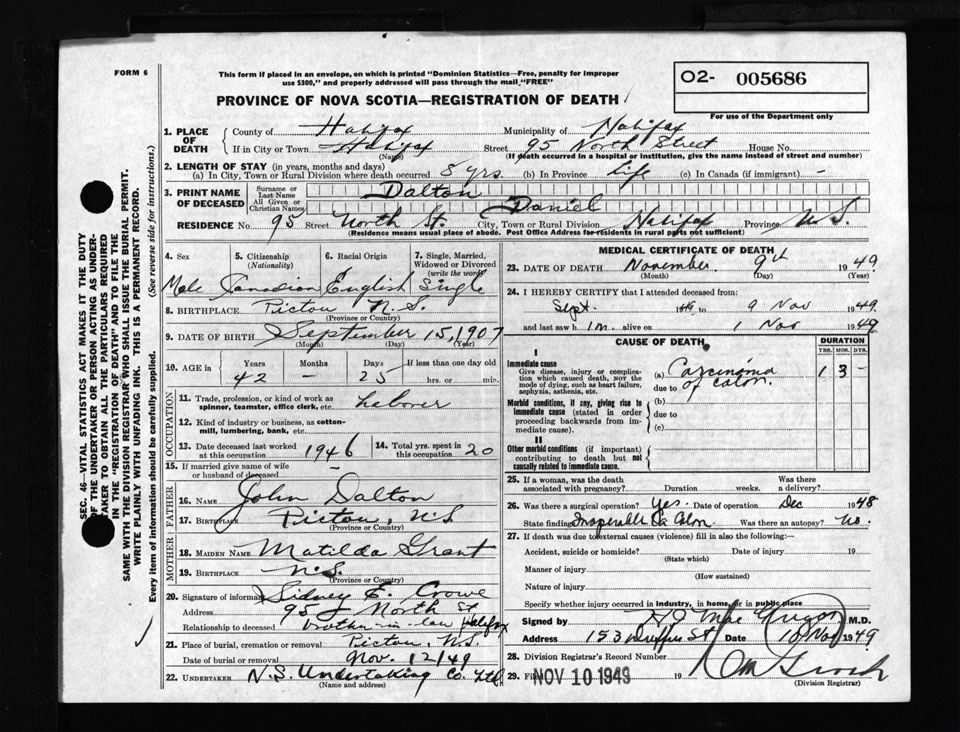 FORM 6
This form if placed in an envelope, on which is printed "Dominion Statistics—Free, penalty for improper
use $300," and properly addressed will pass through the mail "FREE"
O2- 005686
PROVINCE OF NOVA SCOTIA—REGISTRATION OF DEATH
For use of the Department only
1. PLACE OF DEATH { County of Halifax Municipality of Halifax
If in City or Town Halifax (Name) Street 95 North Street House No.
(If death occurred in a hospital or institution, give the name instead of street and number)
2. LENGTH OF STAY (in years, months and days)
(a) In City, Town or Rural Division where death occurred 8 yrs. (b) In Province life (c) In Canada (if immigrant) -
3. PRINT NAME OF DECEASED { Surname or Last Name Dalton
All Given or Christian Names Daniel
RESIDENCE No. 95 Street North St. City, Town or Rural Division Halifax Province N.S.
(Residence means usual place of abode. Post Office Address for residents in rural parts not sufficient)
4. Sex 5. Citizenship (Nationality) 6. Racial Origin 7. Single, Married, Widowed or Divorced (write the word)
Male Canadian English Single
8. BIRTHPLACE Pictou N.S.
(Province or Country)
9. DATE OF BIRTH September 15, 1907
(Month) (Day) (Year)
10. AGE IN Years Months Days If less than one day old
42 - 25 hrs. or min.
OCCUPATION
11. Trade, profession, or kind of work as
spinner, teamster, office clerk, etc. labourer
12. Kind of industry or business, as cotton-
mill, lumbering, bank, etc.
13. Date deceased last worked at this occupation 1946 14. Total yrs. spent in this occupation 20
15. If married give name of wife
or husband of deceased -
FATHER
16. NAME John Dalton
17. BIRTHPLACE Pictou, N.S
(Province or Country)
MOTHER
18. MAIDEN NAME Matilda Grant
19. BIRTHPLACE N.S.
(Province or Country)
20. Signature of informant Sidney E. Crowe
Address 95 North St
Relationship to deceased brother-in-law Halifax
21. Place of burial, cremation or removal Pictou, N.S.
Date of burial or removal Nov. 12/49
22. UNDERTAKER N.S. Undertaking Co. Ltd
(Name and address)
MEDICAL CERTIFICATE OF DEATH
23. DATE OF DEATH November 9th 1949
(Month) (Day) (Year)
24. I HEREBY CERTIFY that I attended deceased from:
Sept. 19 to 9 Nov 1949
and last saw h im alive on 1 Nov 1949
CAUSE OF DEATH DURATION
YRS. MOS. DYS.
I
Immediate cause
Give disease, injury or complication which caused death, NOT the mode of dying, such as heart failure, asphyxia, asthenia, etc.
(a) Carcinoma 1 3 -
due to of colon.
Morbid conditions, if any, giving rise to immediate cause (stated in order proceeding backwards from immediate cause).
(b)
due to
(c)
II
Other morbid conditions (if important) contributing to death but not causally related to immediate cause.
25. If a woman, was the death associated with pregnancy? Duration weeks. Was there a delivery?
26. Was there a surgical operation? Yes. Date of operation Dec 1948
State findings Inoperable Ca Colon. Was there an autopsy? No.
27. If death was due to external causes (violence) fill in also the following:—
Accident, suicide or homicide? Date of injury 19
(State which)
Manner of injury
(How sustained)
Nature of injury
Specify whether injury occurred in industry, in home, or in public place
Signed by M.D.
Address 153 St Date 10 Nov 1949
28. Division Registrar's Record Number
29. NOV 10 1949 19
(Division Registrar)
SEC. 46-VITAL STATISTICS ACT MAKES IT THE DUTY
OF THE UNDERTAKER OR PERSON ACTING AS UNDER-
TAKER TO OBTAIN ALL THE PARTICULARS REQUIRED
IN THE "REGISTRATION OF DEATH" AND TO FILE THE
SAME WITH THE DIVISION REGISTRAR WHO SHALL ISSUE THE BURIAL PERMIT.
WRITE PLAINLY WITH UNFADING INK. THIS IS A PERMANENT RECORD.
Every item of information should be carefully supplied. (See reverse side for instructions.)